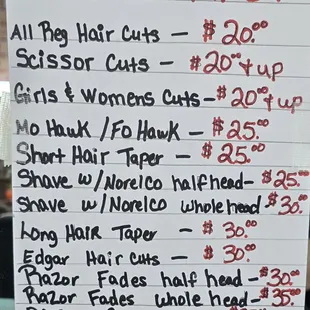 All Reg Hair Cuts - $20.00
Scissor Cuts - $20.00 & up
Girls & Womens Cuts - $20.00 & up
Mo Hawk / Fo Hawk - $25.00
Short Hair Taper - $25.00
Shave w/ Norelco half head - $25.00
Shave w/ Norelco whole head $30.00
Long Hair Taper - $30.00
Edgar Hair Cuts - $30.00
Razor Fades half head - $30.00
Razor Fades whole head - $35.00